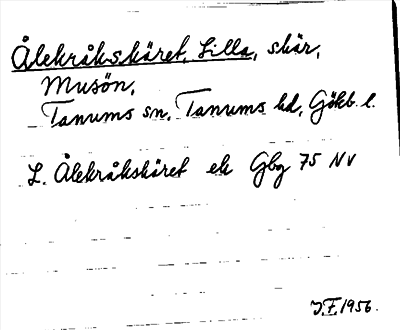 Ålekråkskäret, Lilla, skär,
Musön,
Tanums sn, Tanums hd, Götb. l.
L. Ålekråkskäret ek Gbg 75 NV
J.F. 1956.